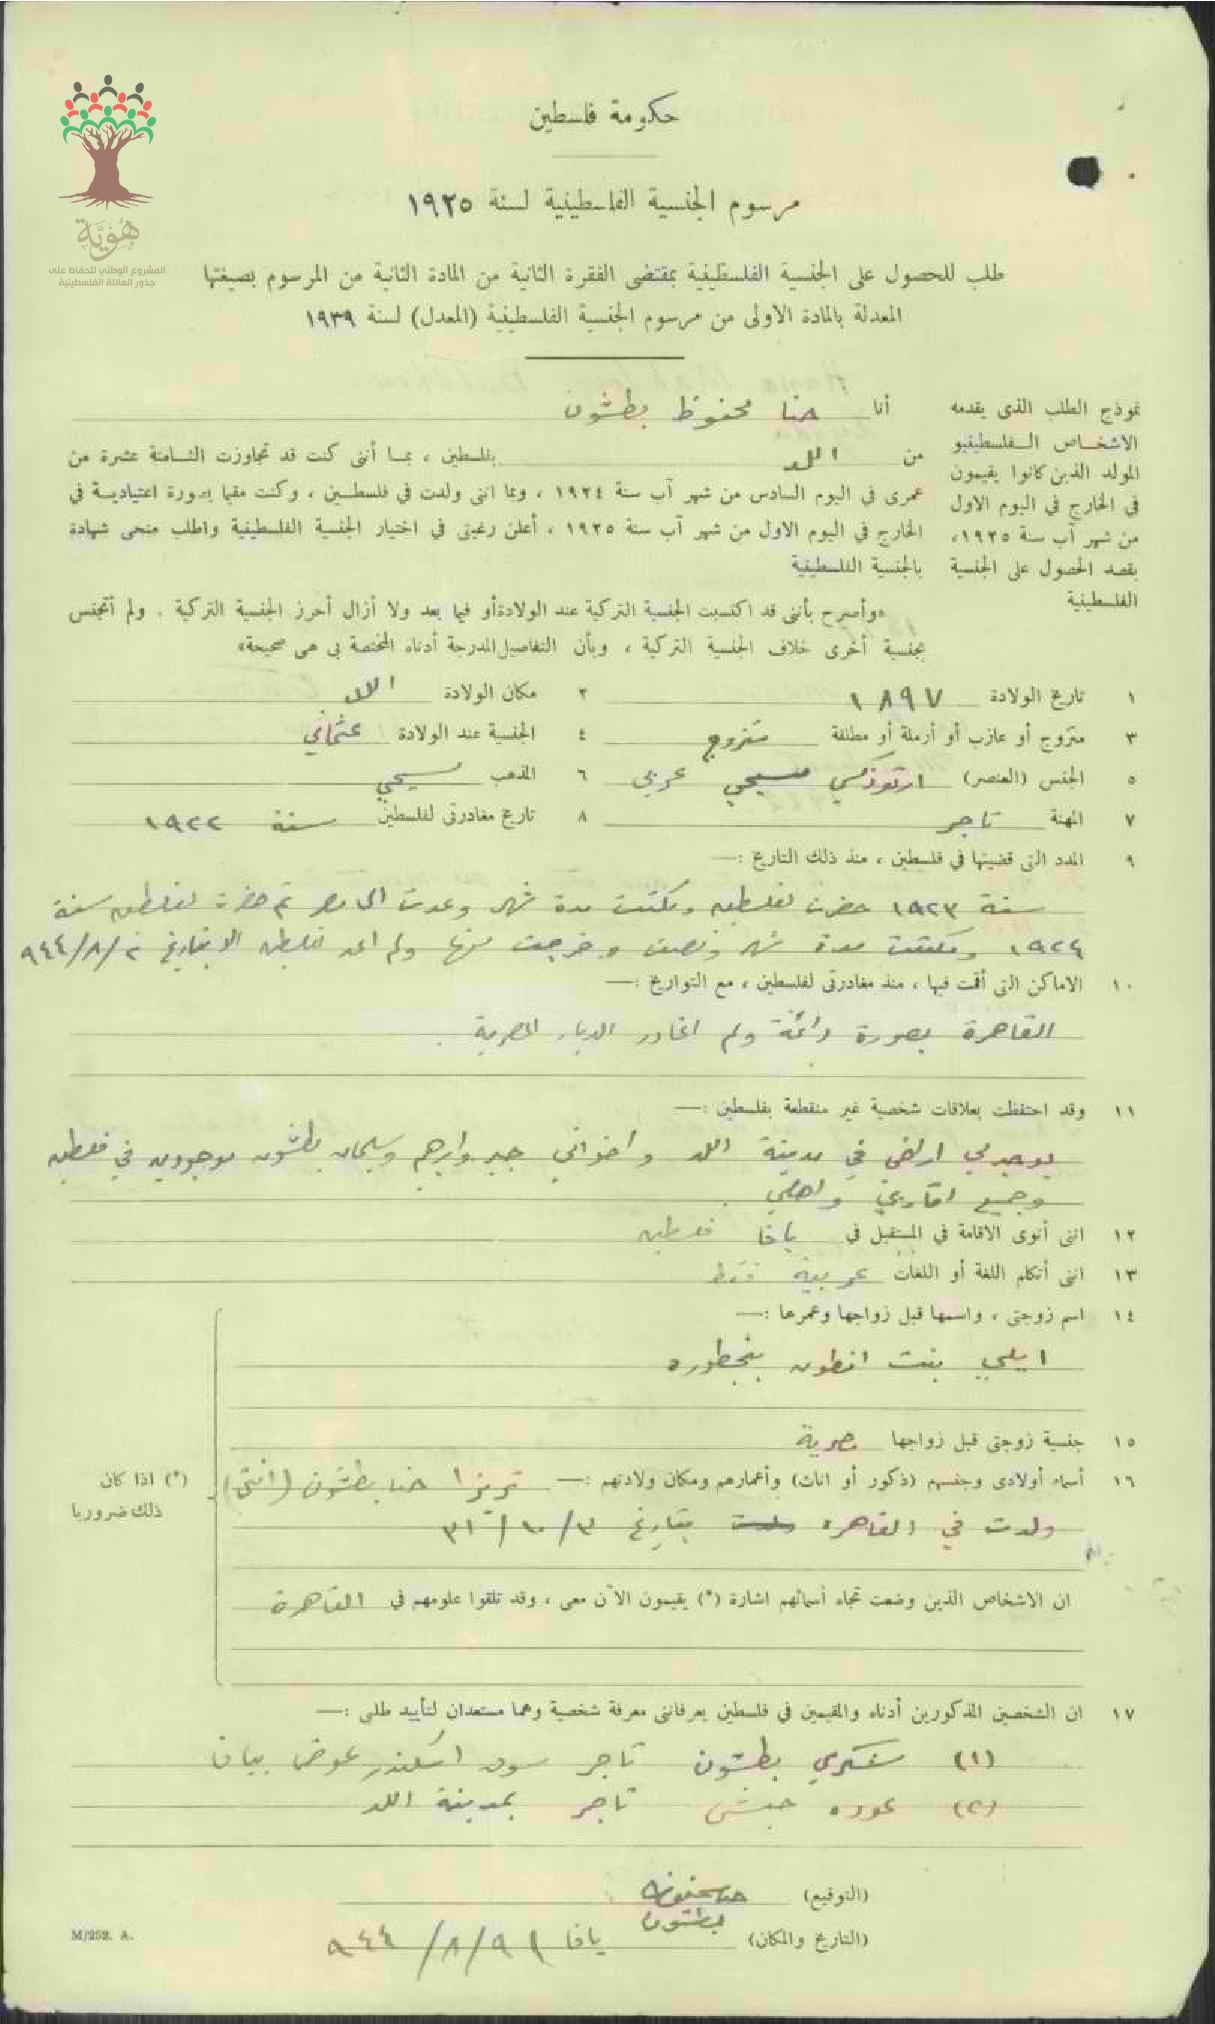 هُوِيَّة
المشروع الوطني للحفاظ على
جذور العائلة الفلسطينية
حكومة فلسطين
مرسوم الجنسية الفلسطينية لسنة ١٩٢٥
طلب للحصول على الجنسية الفلسطينية بمقتضى الفقرة الثانية من المادة الثانية من المرسوم بصيغتها
المعدلة بالمادة الاولى من مرسوم الجنسية الفلسطينية (المعدل) لسنة ١٩٣٩
نموذج الطلب الذى يقدمه
الاشخاص الفلسطينيو
المولد الذين كانوا يقيمون
في الخارج في اليوم الاول
من شهر آب سنة ١٩٢٥،
بقصد الحصول على الجنسية
الفلسطينية
أنا حنا محفوظ بطشون
من اللد بفلسطين ، بما أننى كنت قد تجاوزت الثامنة عشرة من
عمرى في اليوم السادس من شهر آب سنة ١٩٢٤ ، وبما اننى ولدت في فلسطين ، وكنت مقيما بصورة اعتيادية في
الخارج في اليوم الاول من شهر آب سنة ١٩٢٥ ، أعلن رغبتى في اختيار الجنسية الفلسطينية واطلب منحى شهادة
بالجنسية الفلسطينية
«وأصرح بأننى قد اكتسبت الجنسية التركية عند الولادة أو فيما بعد ولا أزال أحرز الجنسية التركية . ولم أتجنس
بجنسية أخرى خلاف الجنسية التركية ، وبأن التفاصيل المدرجة أدناه المختصة بى هى صحيحة»
١ تاريخ الولادة ١٨٩٧ ٢ مكان الولادة اللد
٣ متزوج أو عازب أو أرملة أو مطلقة متزوج ٤ الجنسية عند الولادة عثماني
٥ الجنس (العنصر) ارتوذكسي مسيحي عربي ٦ المذهب مسيحي
٧ المهنة تاجر ٨ تاريخ مغادرتى لفلسطين سنة ١٩٢٢
٩ المدد التى قضيتها في فلسطين ، منذ ذلك التاريخ :—
سنة ١٩٢٣ حضرت لفلسطين ومكثت مدة شهر وعدت الى مصر ثم حضرت لفلسطين سنة
١٩٢٤ ومكثت مدة شهر ونصف وخرجت منها ولم اعد لفلسطين الا بتاريخ ٢/٨/٩٤٤
١٠ الاماكن التى أقمت فيها ، منذ مغادرتى لفلسطين ، مع التواريخ :—
القاهرة بصورة دائمة ولم اغادر الديار المصرية .
١١ وقد احتفظت بعلاقات شخصية غير منقطعة بفلسطين :—
يوجد لي اراضي في مدينة اللد واخواني جبر وابرهيم وسليمان بطشون موجودين في فلسطين
وجميع اقاربي واهلي .
١٢ اننى أنوى الاقامة في المستقبل في يافا فلسطين
١٣ اننى أتكلم اللغة أو اللغات عربية فقط
١٤ اسم زوجتى ، واسمها قبل زواجها وعمرها :—
ايلي بنت انطون
١٥ جنسية زوجتى قبل زواجها مصرية
١٦ أسماء أولادى وجنسهم (ذكور أو اناث) وأعمارهم ومكان ولادتهم :— تريزا حنا بطشون (أنثى)
ولدت في القاهره بتاريخ ٣/١٠/٣١
(*) اذا كان
ذلك ضروريا
ان الاشخاص الذين وضعت تجاه أسمائهم اشارة (*) يقيمون الآن معى ، وقد تلقوا علومهم في القاهرة
١٧ ان الشخصين المذكورين أدناه والمقيمين في فلسطين يعرفاننى معرفة شخصية وهما مستعدان لتأييد طلبى :—
(١) شكري بطشون تاجر سوق اسكندر عوض بيافا
(٢) عوده حبش تاجر بمدينة اللد
(التوقيع) حنا محفوظ
بطشون
(التاريخ والمكان) يافا ٩١/٨/٩٤٤
M/252. A.